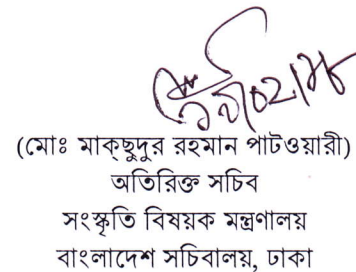 (মোঃ মাকছুদুর রহমান পাটওয়ারী)
অতিরিক্ত সচিব
সংস্কৃতি বিষয়ক মন্ত্রণালয়
বাংলাদেশ সচিবালয়, ঢাকা